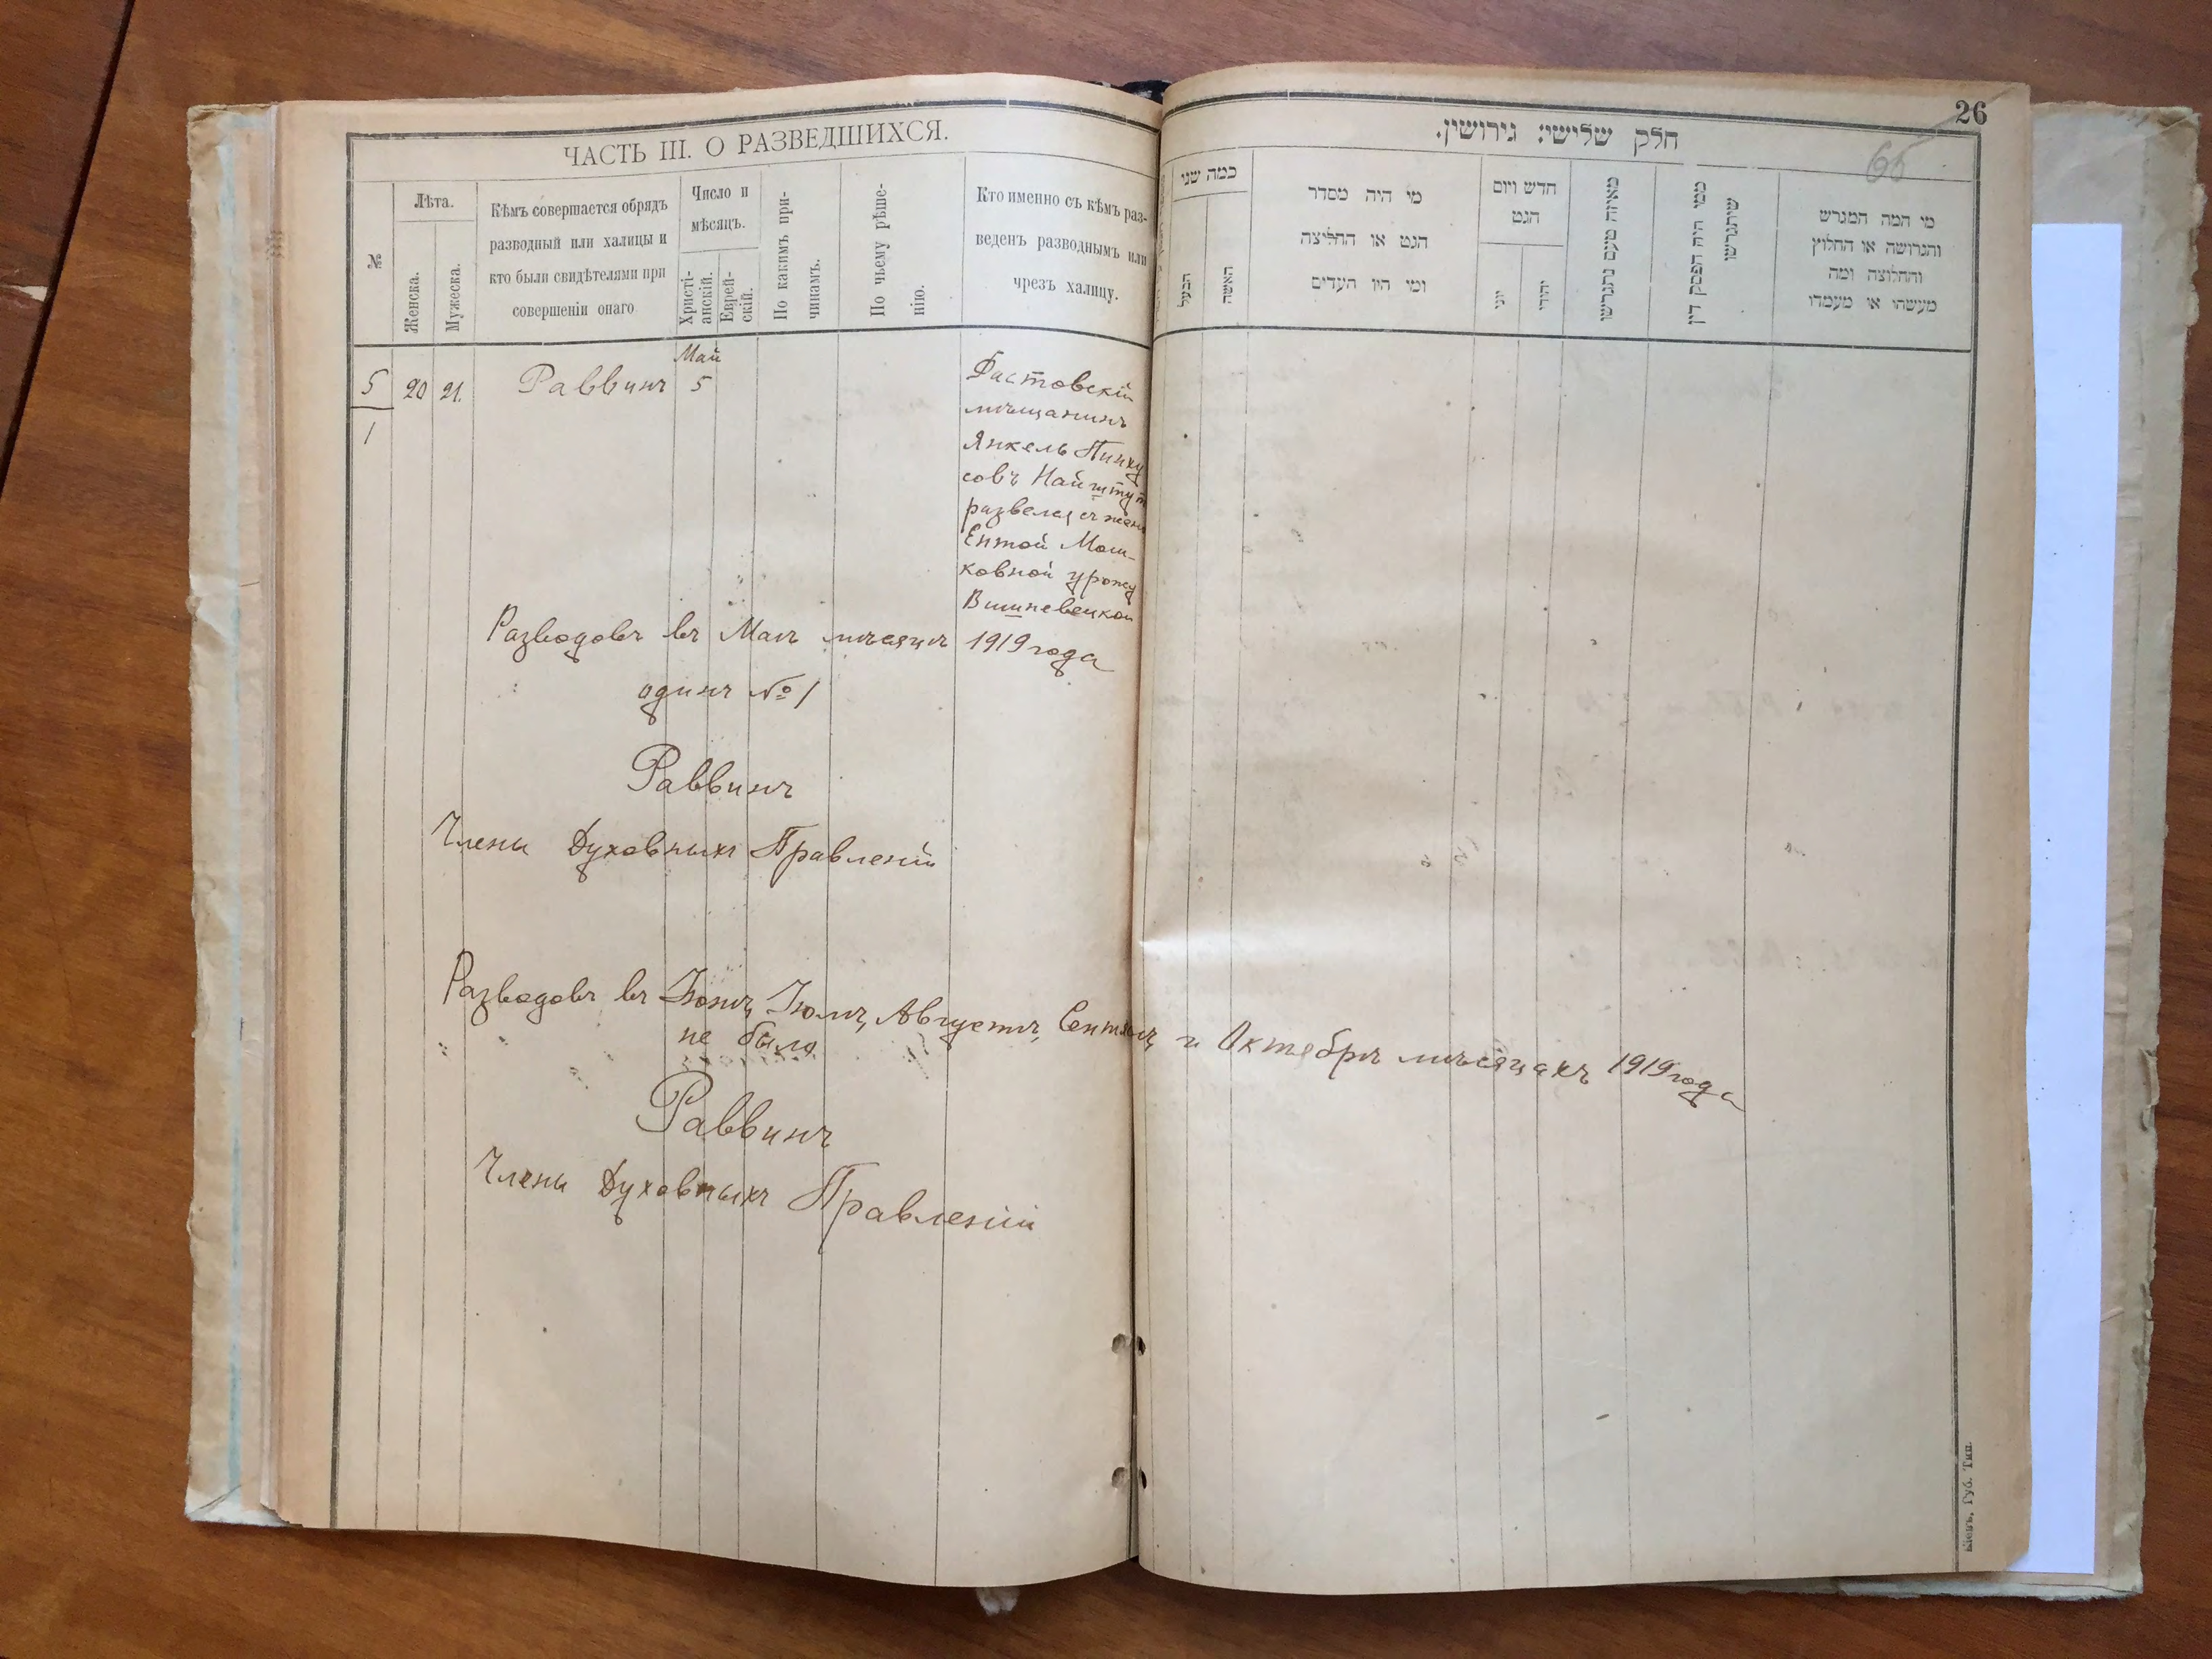 ЧАСТЬ III. О РАЗВЕДШИХСЯ.
№
Лѣта.
Женска.
Мужеска.
Кѣмъ совершается обрядъ
разводный или халицы и
кто были свидѣтелями при
совершеніи онаго
Число и
мѣсяцъ.
Христі-
анскій.
Еврей-
скій.
По какимъ при-
чинамъ.
По чьему рѣше-
нію.
Кто именно съ кѣмъ раз-
веденъ разводнымъ или
чрезъ халицу.
Май
5 20 21. Раввинъ 5
1
Фастовскій
мѣщанинъ
Янкель Пинху
совъ Найштут
развелся съ жен
Ентой Мош-
ковной урожд
Вишневецкой
Разводовъ въ Маѣ мѣсяцѣ 1919 года
одинъ № 1
Раввинъ
Члены Духовныхъ Правленій
Разводовъ въ Іюнѣ, Іюлѣ, Августѣ, Сентяб и Октябрѣ мѣсяцахъ 1919 года
не было
Раввинъ
Члены Духовныхъ Правленій
26
65
חלק שלישי: גירושין.
כמה שני
הבעל
האשה
מי היה מסדר
הגט או החליצה
ומי היו העדים
חדש ויום
הגט
יוני
יהודי
מאיזה טעם נתגרשו
ממי היה הפסק דין
שיתגרשו
מי המה המגרש
והגרושה או החלוץ
והחלוצה ומה
מעשהו או מעמדו
Кіевъ, Губ. Тип.